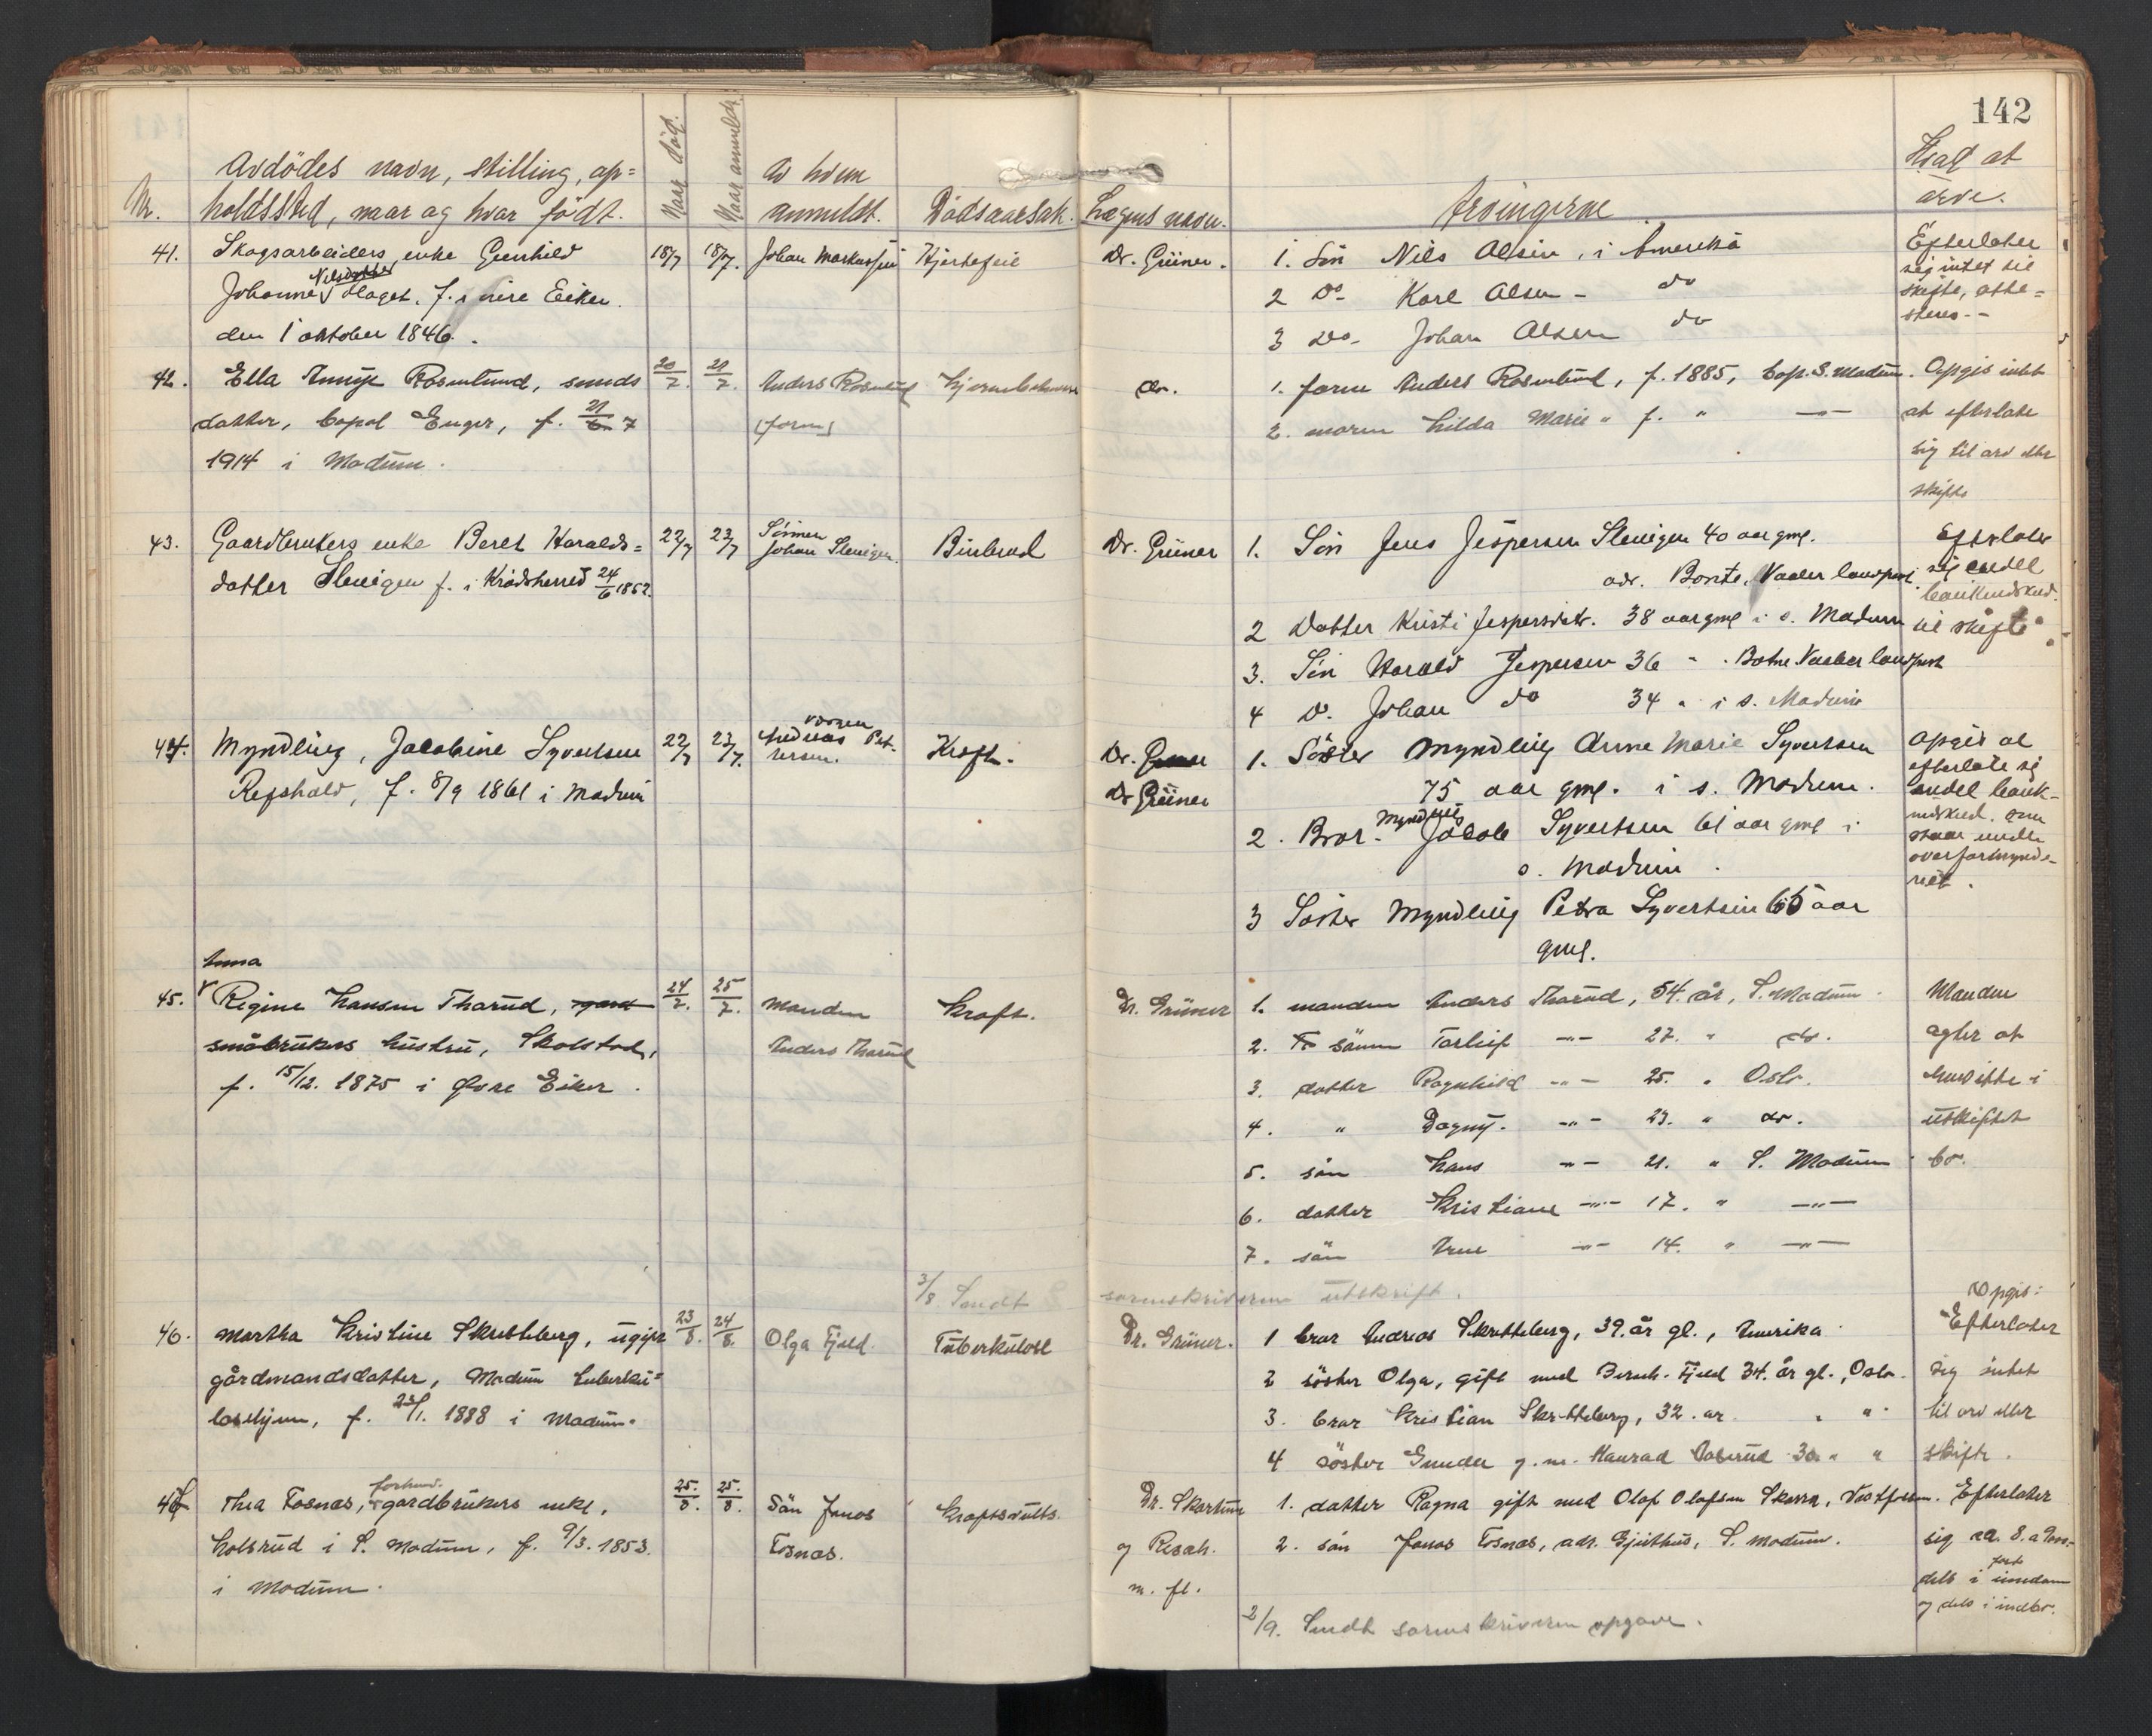 142
Nr.
Avdödes navn, stilling, op=
holdssted, naar og hvor födt.
Naar död.
Naar anmeldt.
Av hvem
anmeldt.
Dödsaarsak.
Lægens navn.
Arvingerne
Hvad at
arve.
41. Skogsarbeiders enke Gunhild
Nilsdatter
Johanne Haget, f. i övre Eiker
den 1 oktober 1846.
18/7 18/7. Johan Markussen Hjertefeil
Dr. Grüner. 1. Sön Nils Olsen, i Amerika
2 Do- Karl Olsen - do
3 Do- Johan Olsen do
Efterlater
sig intet til
skifte, atte=
steres.-
42. Ella Rosenlund, smeds
datter, bopæl Enger, f. 21/7
1914 i Modum.
20/7. 21/7. Anders Rosenlund
(faren)
do. 1. faren Anders Rosenlund, f. 1885, bop. S. Modum.
2. moren Hilda Marie " f. " -"-
Opgis intet
at efterlate
sig til arv eller
skifte
43. Gaardbrukers enke Beret Haralds=
datter f. i Krödsherred 24/6 1852.
22/7 23/7 Sönnen
Johan
Dr. Grüner 1. Sön Jens Jespersen 40 aar gml.
adr. Vaaler landpost.
2 Datter Kristi Jespersdtr. 38 aar gml i s. Modum
3. Sön Harald Jespersen 36 " . Vaaler landpost
4 Do. Johan do 34 " i s. Modum
Efterlater
sig endel
bankindskud.
til skifte
44. Myndling, Jacobine Syvertsen
f. 8/9 1861 i Modum
22/7 23/7. vergen
Andreas Pet-
tersen. Kræft.
Dr.
Dr Grüner
1. Söster Myndling Anne Marie Syvertsen
75 aar gml. i s. Modum.
2. Bror- Myndling Jacob Syvertsen 61 aar gml i
s. Modum.
3 Söster Myndling Petra Syvertsen 65 aar
gml.
Opgis at
efterlate sig
endel bank-
indskud. som
staar under
overformynde-
riet.
Anna
45. Regine Hansen Tharud,
småbrukers hustru, Skalstad,
f. 15/12. 1875 i Övre Eiker.
24/7. 25/7. Manden
Anders Tharud
Kræft.
Dr. Grüner 1. manden Anders Tharud, 54. år, S. Modum.
2. sönnen Torleif -"- 27. " do.
3. datter Ragnhild -"- 25. " Oslo.
4. " Dagny. -"- 23. " do.
5. sön Hans -"- 21. " S. Modum
6. datter Kristiane -"- 17. " -"-
7. sön Arne -"- 14. " -"-
Manden
agter at
hensitte i
uskiftet
bo.
3/8. Sendt sorenskriveren utskrift.
46. Martha Kristine Skretteberg, ugift
gårdmandsdatter, Modum tuberku=
losehjem, f. 23/1. 1888 i Modum.
23/8. 24/8. Olga Fjeld. Tuberkulose
Dr. Grüner. 1 bror Andreas Skretteberg, 39. år gl., Amerika
2 söster Olga, gift med Bernh. Fjeld 34. år gl., Oslo.
3. bror Kristian Skretteberg, 32. år. " "
4 söster Gunda g. m. 30. " "
Opgis:
Efterlater
sig intet
til arv eller
skifte.
47 Thea Fosnæs, forhenv. gardbrukers enke,
Kolsrud i S. Modum, f. 9/3. 1853.
i Modum.
25./8. 25./8. Sön Jonas
Fosnæs.
Kræftsvulst.
Dr. Skartum
og
m. fl.
1. datter Ragna gift med Olaf Olafsen Skarra, Vestfossen.
2. sön Jonas Fosnæs, adr. Gjeithus, S. Modum.
Efterlater
sig ca. 8. a
dels i fast eiendom
og dels i indbo.
2/9. Sendt sorenskriveren opgave.